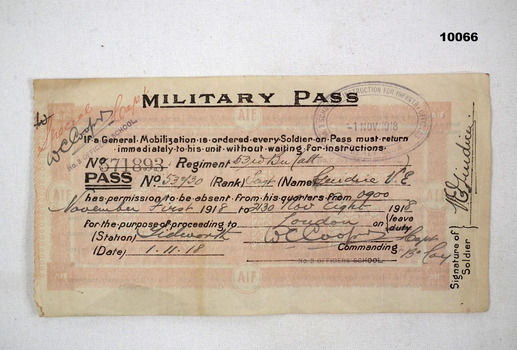 10066
MILITARY PASS
AIF
-1 NOV. 1918
If a General Mobilization is ordered every Soldier on Pass must return
immediately to his unit without waiting for instructions.
No. 371893 Regiment 53rd Battn
PASS No. (Rank) (Name) V E
has permission to be absent from his quarters from 0900
November First 1918 to 2130 Nov Eight 1918
For the purpose of proceeding to London on leave duty
(Station) Tidworth W C Coop Capt
(Date) 1.11.18 Commanding B Coy
No. 3 OFFICERS SCHOOL.
AIF
AIF
Special Capt
W C Coop
No. 3 OFFICERS SCHOOL
Signature of Soldier